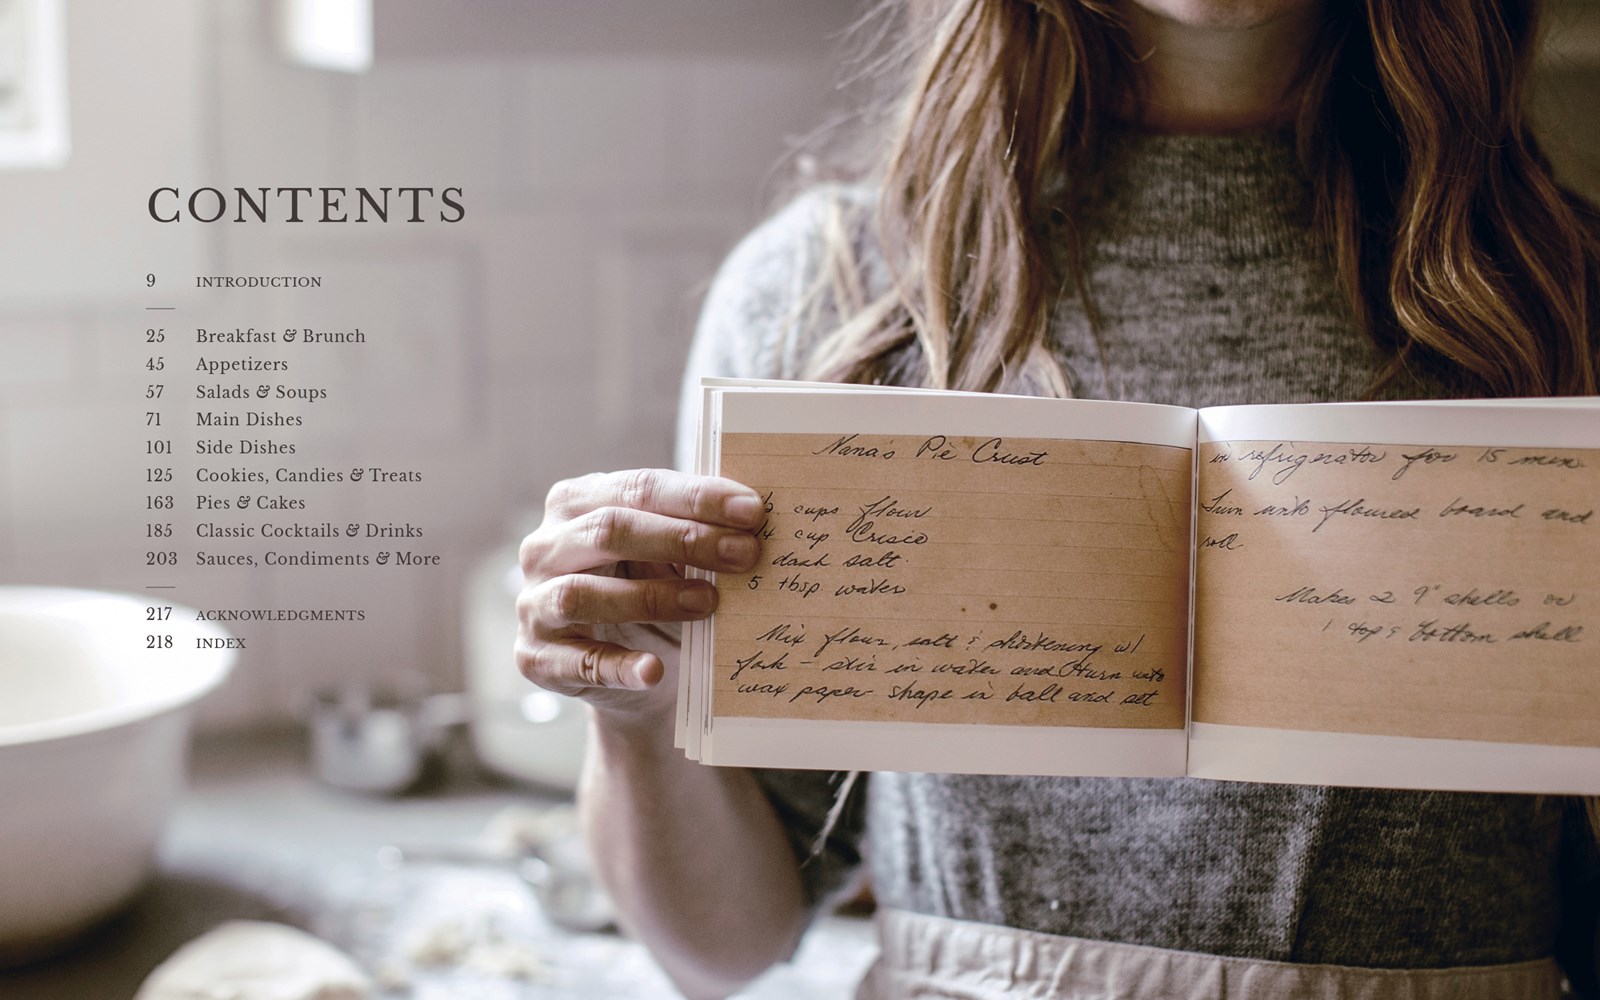 CONTENTS
9 INTRODUCTION
25 Breakfast & Brunch
45 Appetizers
57 Salads & Soups
71 Main Dishes
101 Side Dishes
125 Cookies, Candies & Treats
163 Pies & Cakes
185 Classic Cocktails & Drinks
203 Sauces, Condiments & More
217 ACKNOWLEDGMENTS
218 INDEX
Nana's Pie Crust
cups flour
cup Crisco
dash salt
5 tbsp water
Mix flour, salt & shortening w/
fork - stir in water and turn onto
wax paper shape in ball and set
in refrigerator for 15 min.
Turn unto floured board and
roll
Makes 2 9" shells or
1 top & bottom shell